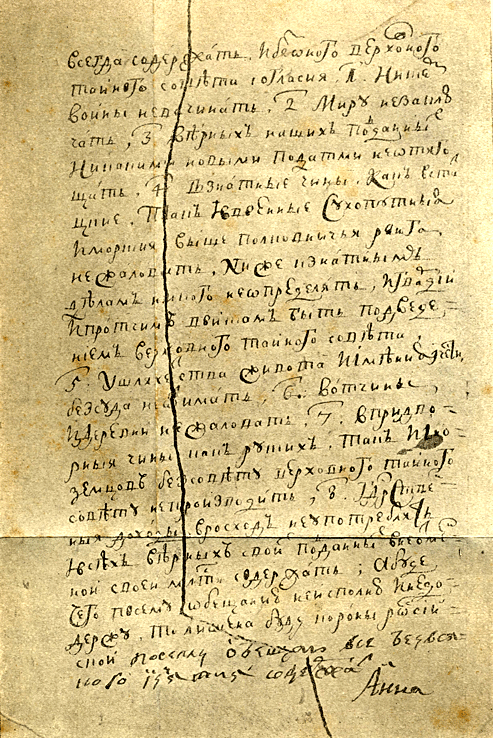 всегда содержать, и без оного верховного
тайного совѣта согласия 1. Ни с кем
войны невчинать, 2 Миру незаклю
чать, 3 вѣрных наших подданных
Никакими новыми податми неотяго
щать, 4 В знатные чины, какъ в ста
цкие, такъ и в военные Сухопутныя
и морския выше полковничья ранга
не жаловать, Ниже к знатнымъ
дѣламъ никого неопределять, и гвардии
и протчимъ войскам быть подведе
ниемъ верховного тайного совѣта,
5. У шляхетства живота и имѣния и чести,
без суда неотнимать, 6. вотчины,
и деревни нежаловать, 7. в придво
рныя чины как руских, такъ и ино
земцовъ без совѣту верховного тайного
совѣту непроизводить, 8. Гдрстве
ныя доходы в росход неупотреблять
и всѣхъ вѣрныхъ своих поданных в неотме
нной своеи млсти содержать; а буде
чего по сему обещанию неисполню и недо
держу, то лишена буду короны росии
ской по сему обещаю все безвся
кого содержать
Анна